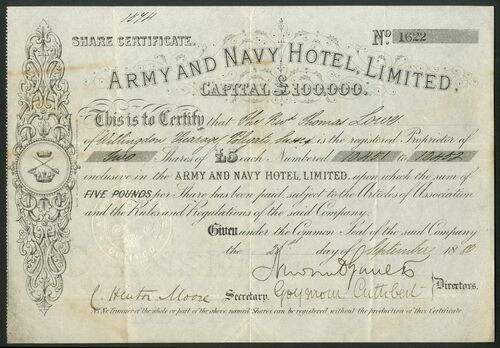 1874
SHARE CERTIFICATE.
No 1622
ARMY AND NAVY HOTEL, LIMITED.
CAPITAL £100,000.
This is to Certify that The Revd Thomas Lowe
of Willingdon Vicarage Polegate Sussex is the registered Proprietor of
Two Shares of £5 each Numbered 10451 to 10452
inclusive in the ARMY AND NAVY HOTEL, LIMITED. upon which the sum of
FIVE POUNDS per Share has been paid, subject to the Articles of Association
and the Rules and Regulations of the said Company.
Given under the Common Seal of the said Company
the day of September 18
C. Henton Moore Secretary. Cuthbert Directors.
No Transfer of the whole or part of the above named Shares can be registered without the production of this Certificate